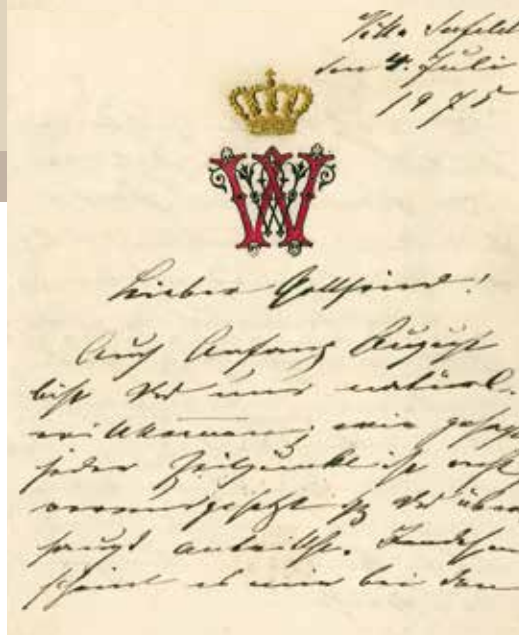 Villa Seefeld
den 4. Juli
1875
W
Lieber Gottfried!
Auch Anfang August
bist Du uns natürl.
willkommen; wie gesagt
jeder Zeitpunkt ist recht
vorausgesetzt Du über
haupt
scheint es mir bei den